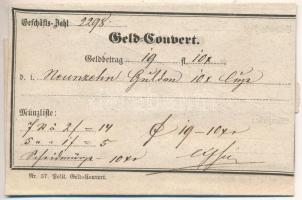 Geschäfts-Zahl 2298.
Geld-Couvert.
Geldbetrag 19 fl. 10x
d. i. Neunzehn Gulden 10x
Münzliste:
7 N à 2f = 14
5 " " 1f = 5
Scheidmünze - 10xr
19-10xr
Nr. 57. Polit. Geld-Couvert.